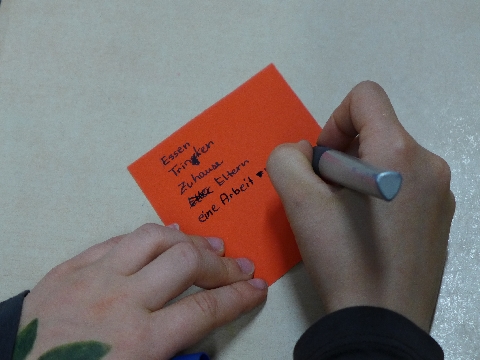 Essen
Trinken
Zuhause
Eltern
eine Arbeit